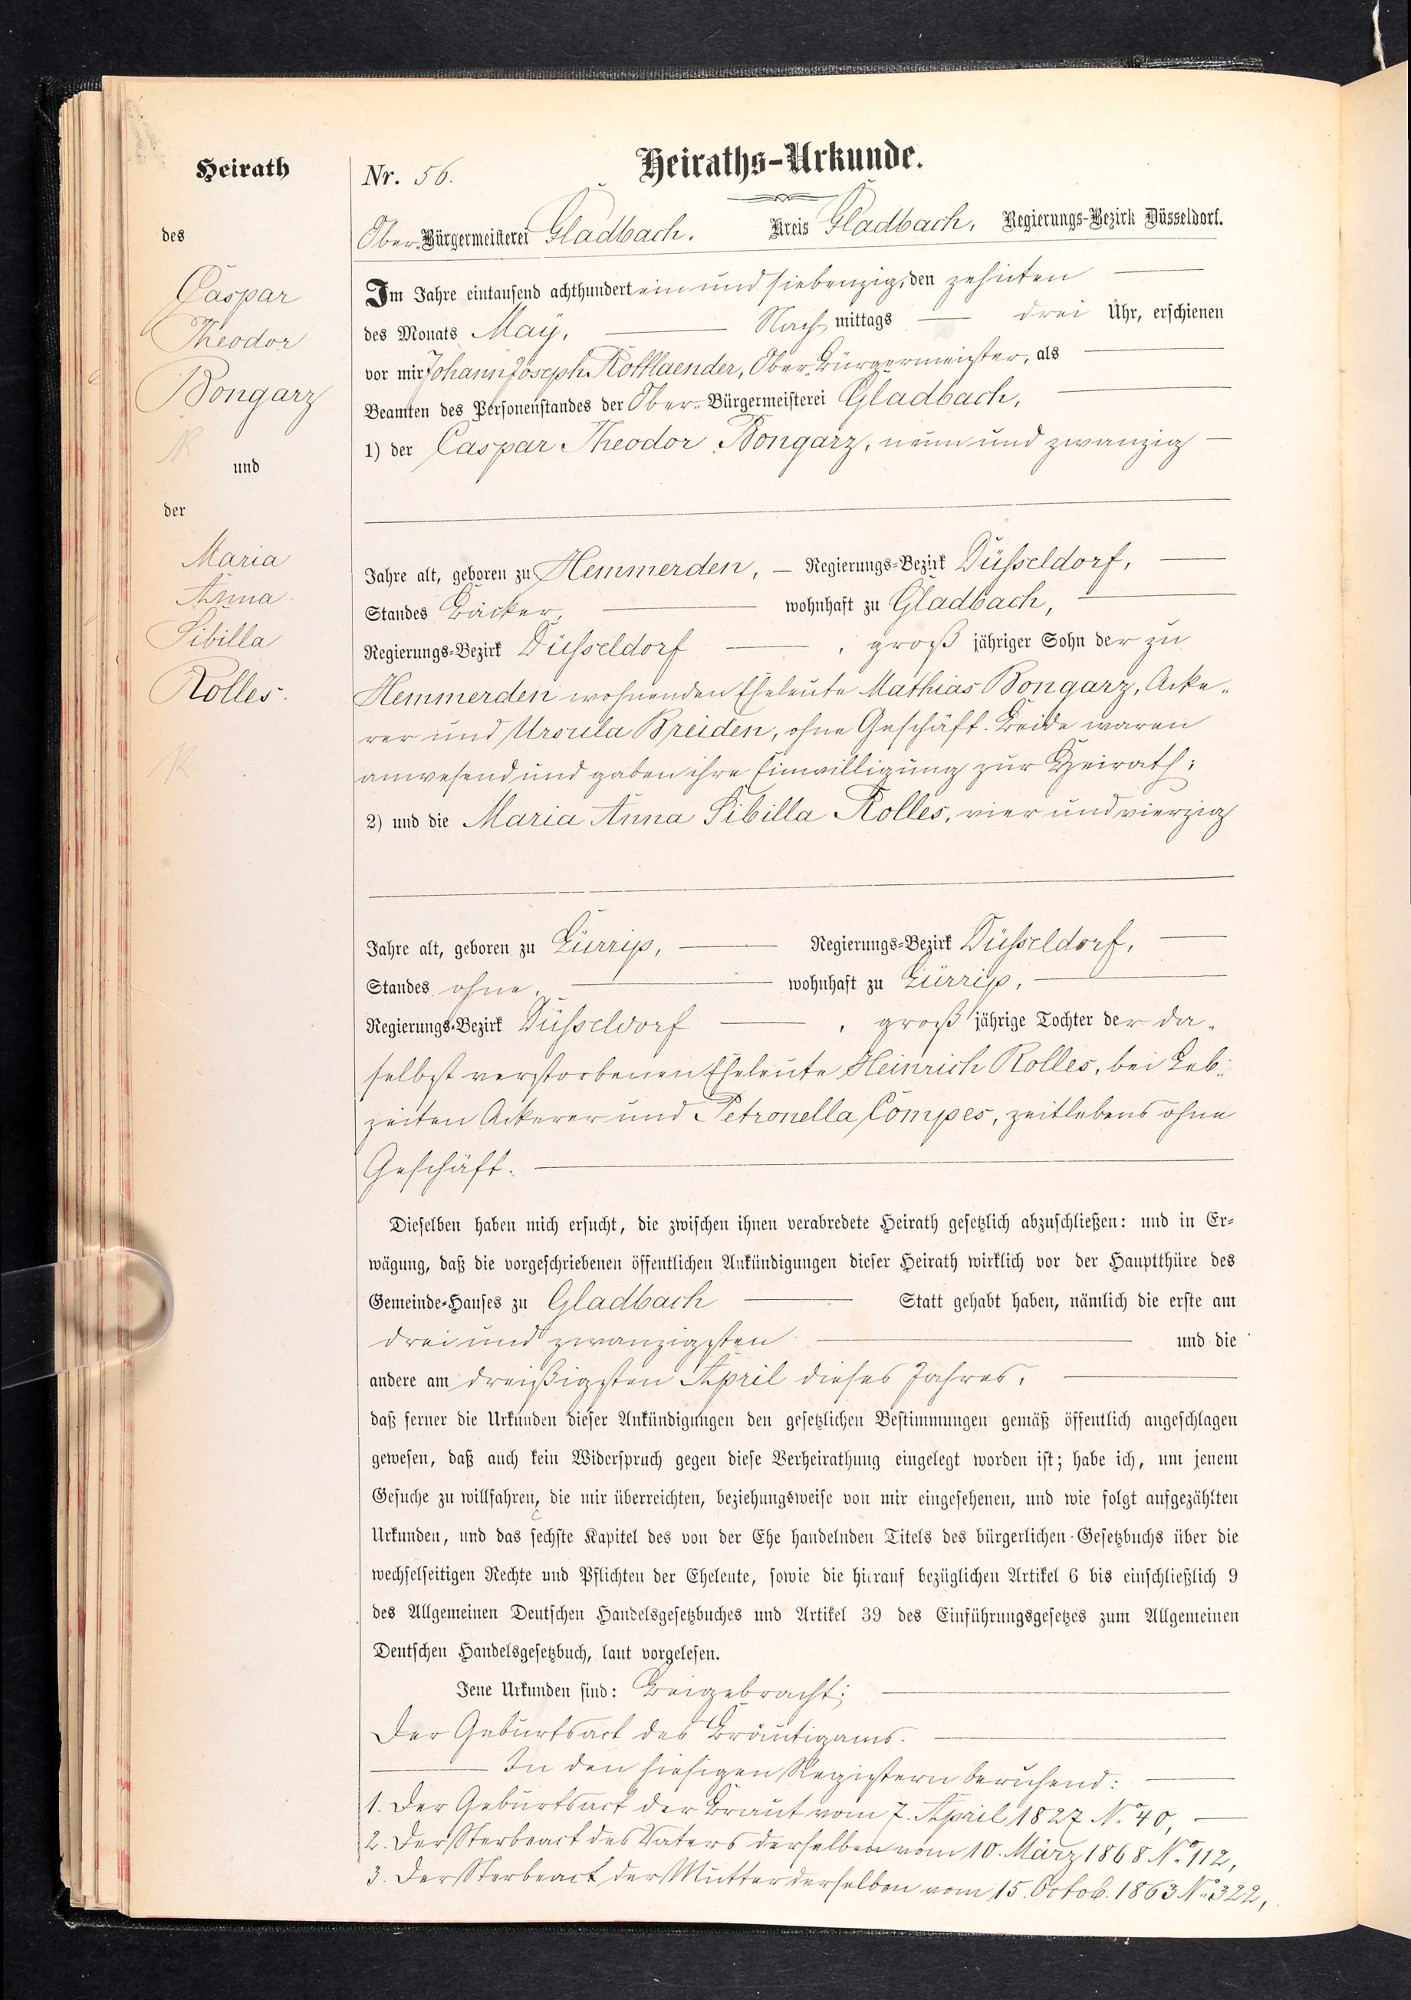 Heirath
des
Caspar
Theodor
Bongarz
und
der
Maria
Anna
Sibilla
Rolles.
Nr. 56.
Heiraths-Urkunde.
Ober-Bürgermeisterei Gladbach. Kreis Gladbach, Regierungs-Bezirk Düsseldorf.
Im Jahre eintausend achthundert ein und siebenzig, den zehnten
des Monats May, Nachmittags drei Uhr, erschienen
vor mir Johann Joseph Rottlaender, Ober-Bürgermeister, als
Beamten des Personenstandes der Ober-Bürgermeisterei Gladbach,
1) der Caspar Theodor Bongarz, neun und zwanzig
Jahre alt, geboren zu Hemmerden, Regierungs-Bezirk Düsseldorf,
Standes Bäcker, wohnhaft zu Gladbach,
Regierungs-Bezirk Düsseldorf, großjähriger Sohn der zu
Hemmerden wohnenden Eheleute Mathias Bongarz, Acke-
rer und Ursula Breiden, ohne Geschäft. Beide waren
anwesend und gaben ihre Einwilligung zur Heirath;
2) und die Maria Anna Sibilla Rolles, vier und vierzig
Jahre alt, geboren zu Lürrip, Regierungs-Bezirk Düsseldorf,
Standes ohne, wohnhaft zu Lürrip,
Regierungs-Bezirk Düsseldorf, großjährige Tochter der da-
selbst verstorbenen Eheleute Heinrich Rolles, bei Leb-
zeiten Ackerer und Petronella Compes, zeitlebens ohne
Geschäft.
Dieselben haben mich ersucht, die zwischen ihnen verabredete Heirath gesetzlich abzuschließen: und in Er-
wägung, daß die vorgeschriebenen öffentlichen Ankündigungen dieser Heirath wirklich vor der Hauptthüre des
Gemeinde-Hauses zu Gladbach Statt gehabt haben, nämlich die erste am
drei und zwanzigsten und die
andere am dreißigsten April dieses Jahres,
daß ferner die Urkunden dieser Ankündigungen den gesetzlichen Bestimmungen gemäß öffentlich angeschlagen
gewesen, daß auch kein Widerspruch gegen diese Verheirathung eingelegt worden ist; habe ich, um jenem
Gesuche zu willfahren, die mir überreichten, beziehungsweise von mir eingesehenen, und wie folgt aufgezählten
Urkunden, und das sechste Kapitel des von der Ehe handelnden Titels des bürgerlichen Gesetzbuchs über die
wechselseitigen Rechte und Pflichten der Eheleute, sowie die hierauf bezüglichen Artikel 6 bis einschließlich 9
des Allgemeinen Deutschen Handelsgesetzbuches und Artikel 39 des Einführungsgesetzes zum Allgemeinen
Deutschen Handelsgesetzbuch, laut vorgelesen.
Jene Urkunden sind: Beigebracht;
Der Geburtsact des Bräutigams.
In den hiesigen Registern beruhend:
1. Der Geburtsact der Braut vom 7. April 1827 No 40,
2. Der Sterbeact des Vaters derselben vom 10. März 1868 No 112,
3. Der Sterbeact der Mutter derselben vom 15. Octob. 1863 No 322,